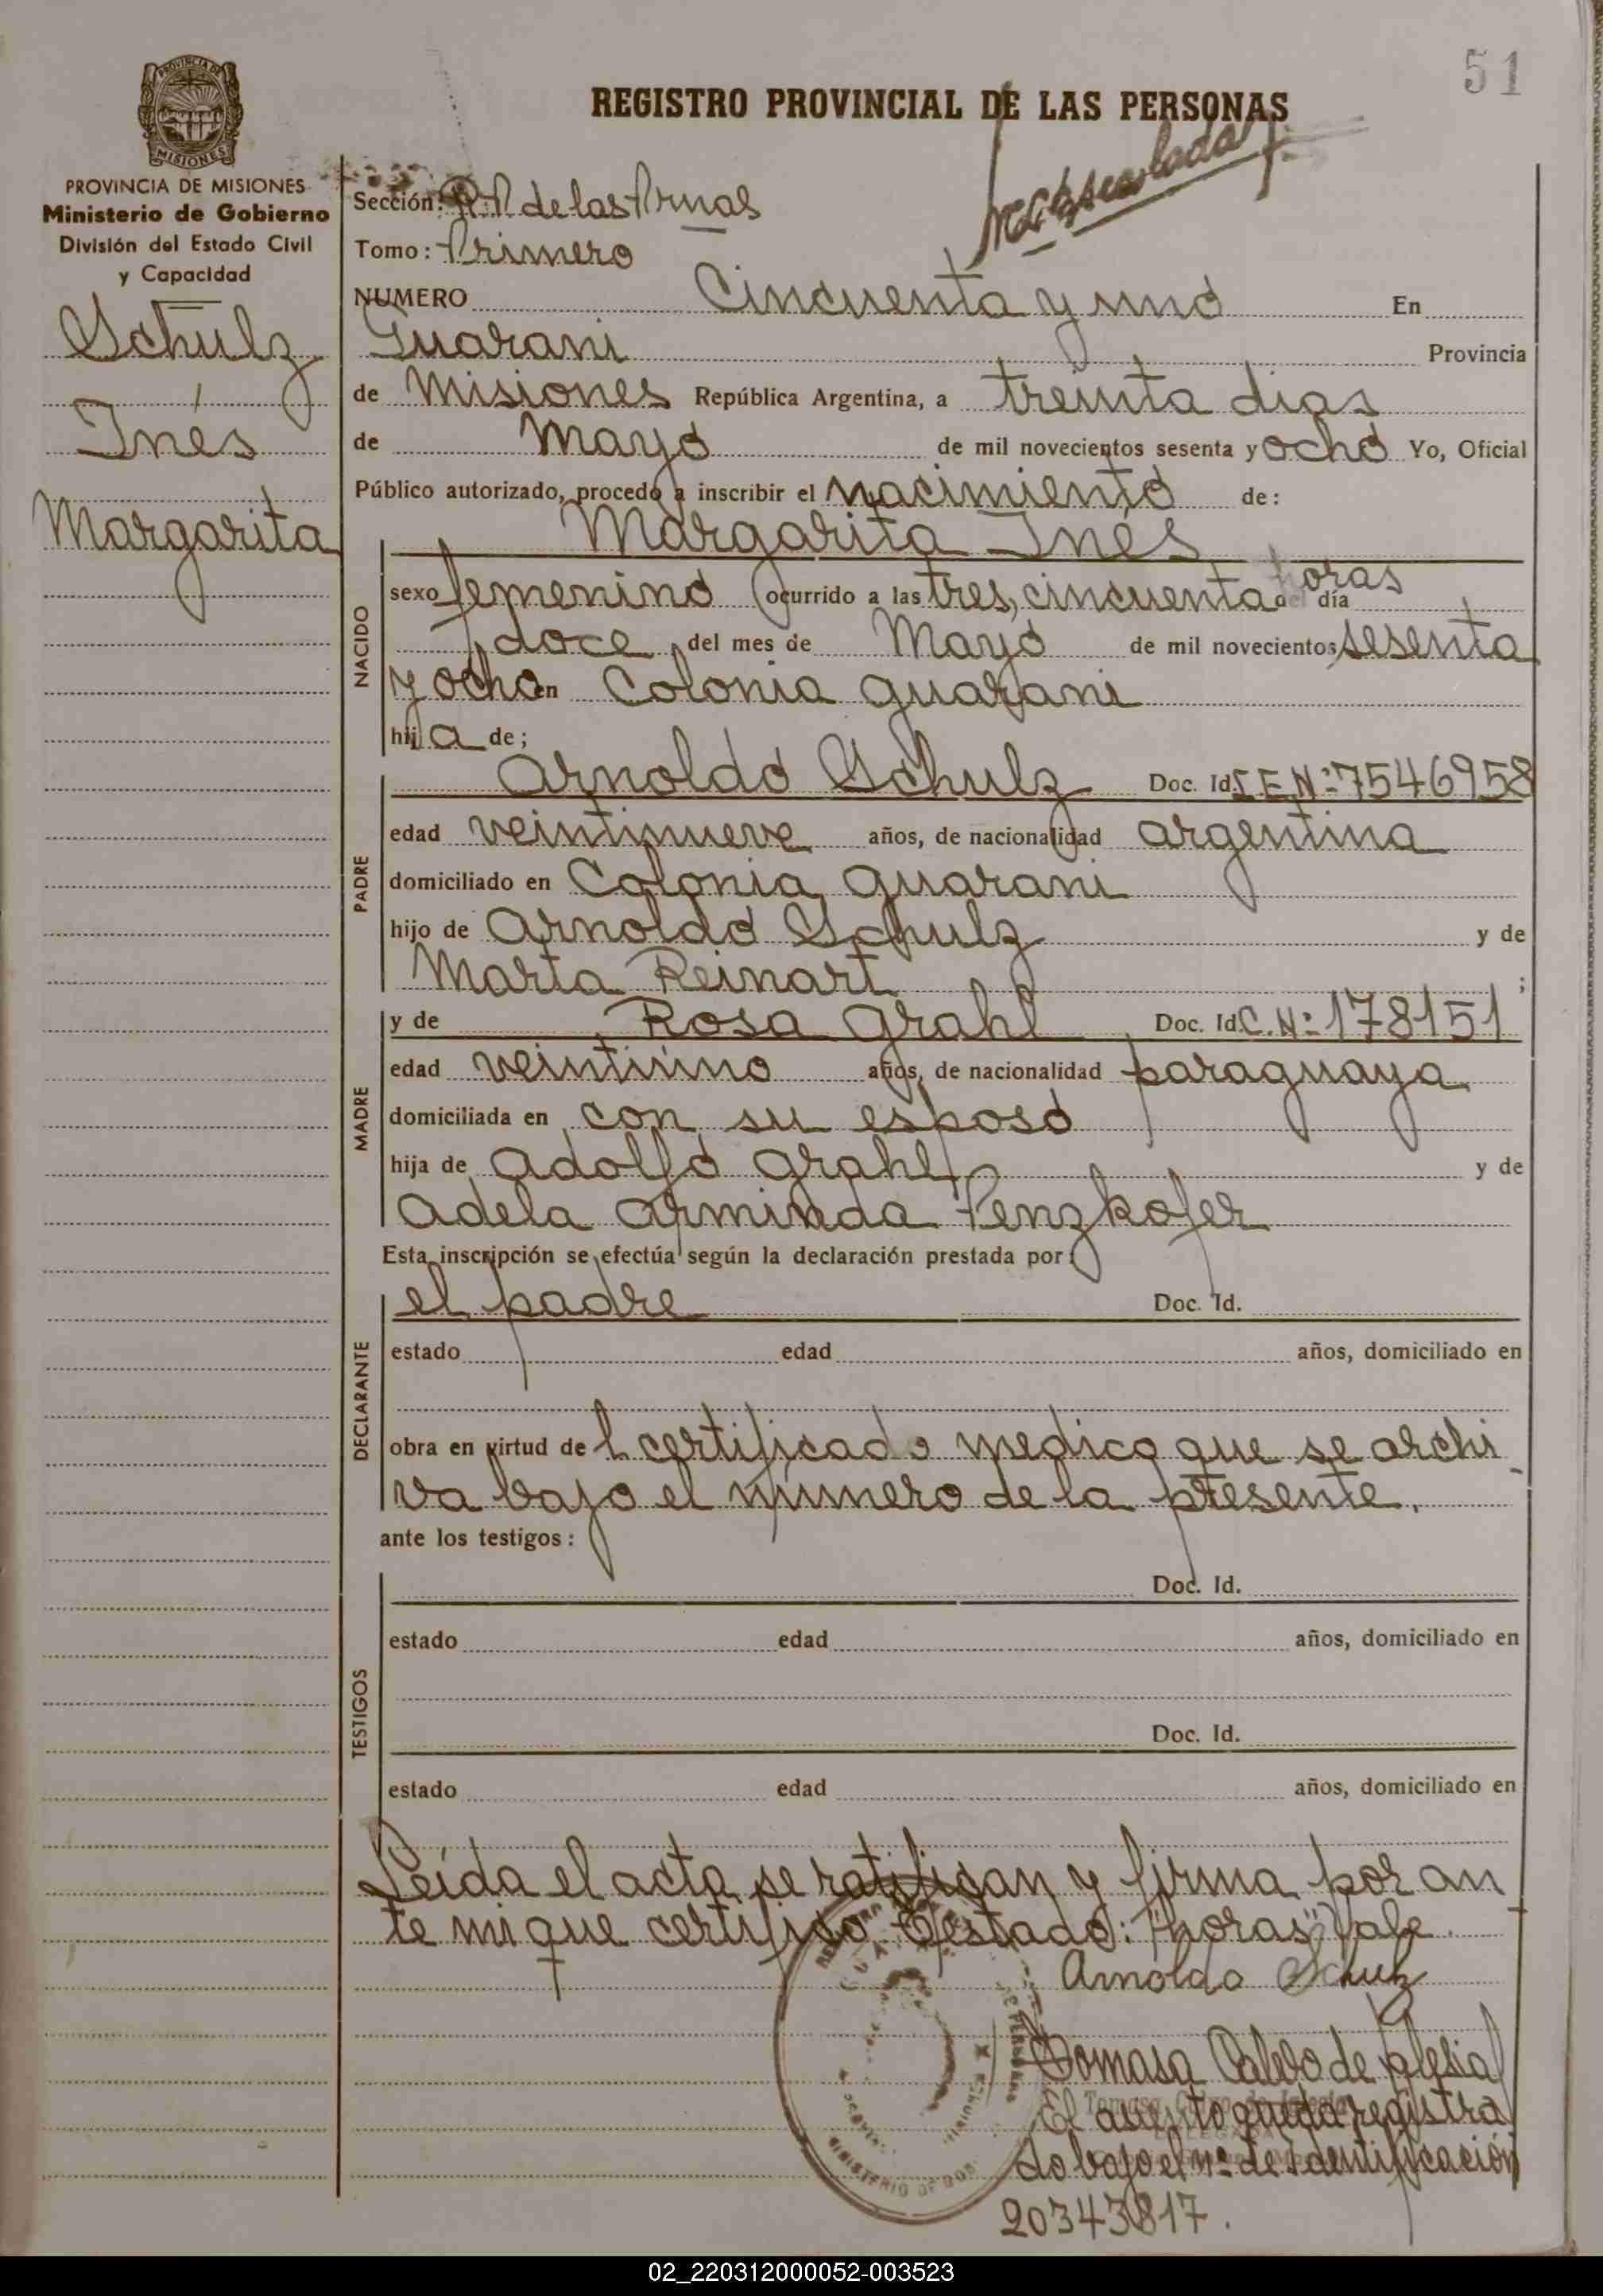 51
PROVINCIA DE
MISIONES
REGISTRO PROVINCIAL DE LAS PERSONAS
Matriculada
PROVINCIA DE MISIONES
Ministerio de Gobierno
División del Estado Civil
y Capacidad
Schulz
Inés
Margarita
Sección: R.P. de las Prnas
Tomo: Primero
NUMERO Cincuenta y uno En
Guarani Provincia
de Misiones República Argentina, a treinta dias
de Mayo de mil novecientos sesenta y ocho Yo, Oficial
Público autorizado, procedo a inscribir el nacimiento de:
Margarita Inés
NACIDO
sexo femenino ocurrido a las tres, cincuenta horas del día
doce del mes de Mayo de mil novecientos sesenta
y ocho en Colonia Guarani
hija de;
PADRE
Arnoldo Schulz Doc. Id. L E Nº 7546958
edad veintinueve años, de nacionalidad argentina
domiciliado en Colonia Guarani
hijo de Arnoldo Schulz y de
Marta Reinart ;
MADRE
y de Rosa Grahl Doc. Id. C. Nº 178151
edad veintiuno años, de nacionalidad paraguaya
domiciliada en con su esposo
hija de Adolfo Grahl y de
Adela Arminda Penzkofer
Esta inscripción se efectúa según la declaración prestada por:
DECLARANTE
el padre Doc. Id.
estado edad años, domiciliado en
obra en virtud de l certificado medico que se archi
va bajo el número de la presente.
ante los testigos:
TESTIGOS
Doc. Id.
estado edad años, domiciliado en
Doc. Id.
estado edad años, domiciliado en
Leída el acta se ratifican y firma por an
te mi que certifico. Testado: "horas" Vale.
Arnoldo Schulz
Tomasa Calvo de Iglesia
El asiento queda registra
do bajo el nº de Identificación
20343817.
02_220312000052-003523